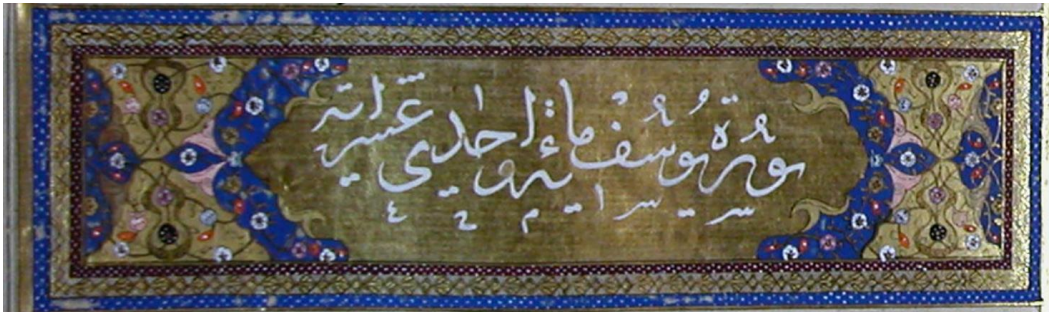 سورة يوسف مائة واحدي عشر اية